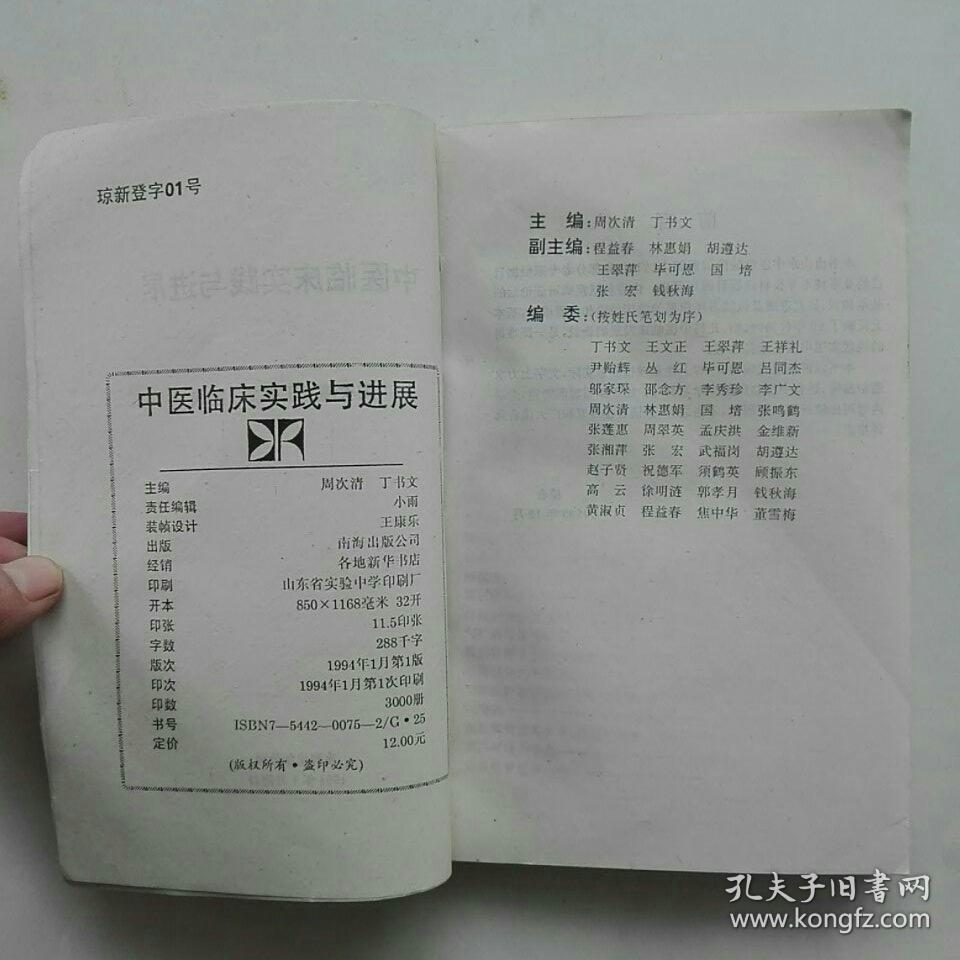 琼新登字01号
中医临床实践与进展
主编 周次清 丁书文
责任编辑 小雨
装帧设计 王康乐
出版 南海出版公司
经销 各地新华书店
印刷 山东省实验中学印刷厂
开本 850×1168毫米 32开
印张 11.5印张
字数 288千字
版次 1994年1月第1版
印次 1994年1月第1次印刷
印数 3000册
书号 ISBN7—5442—0075—2/G·25
定价 12.00元
(版权所有·盗印必究)
主 编:周次清 丁书文
副主编:程益春 林惠娟 胡遵达
王翠萍 毕可恩 国 培
张 宏 钱秋海
编 委:(按姓氏笔划为序)
丁书文 王文正 王翠萍 王祥礼
尹贻辉 丛 红 毕可恩 吕同杰
邬家琛 邵念方 李秀珍 李广文
周次清 林惠娟 国 培 张鸣鹤
张莲惠 周翠英 孟庆洪 金维新
张湘萍 张 宏 武福岗 胡遵达
赵子贤 祝德军 须鹤英 顾振东
高 云 徐明涟 郭孝月 钱秋海
黄淑贞 程益春 焦中华 董雪梅
孔夫子旧書网
www.kongfz.com